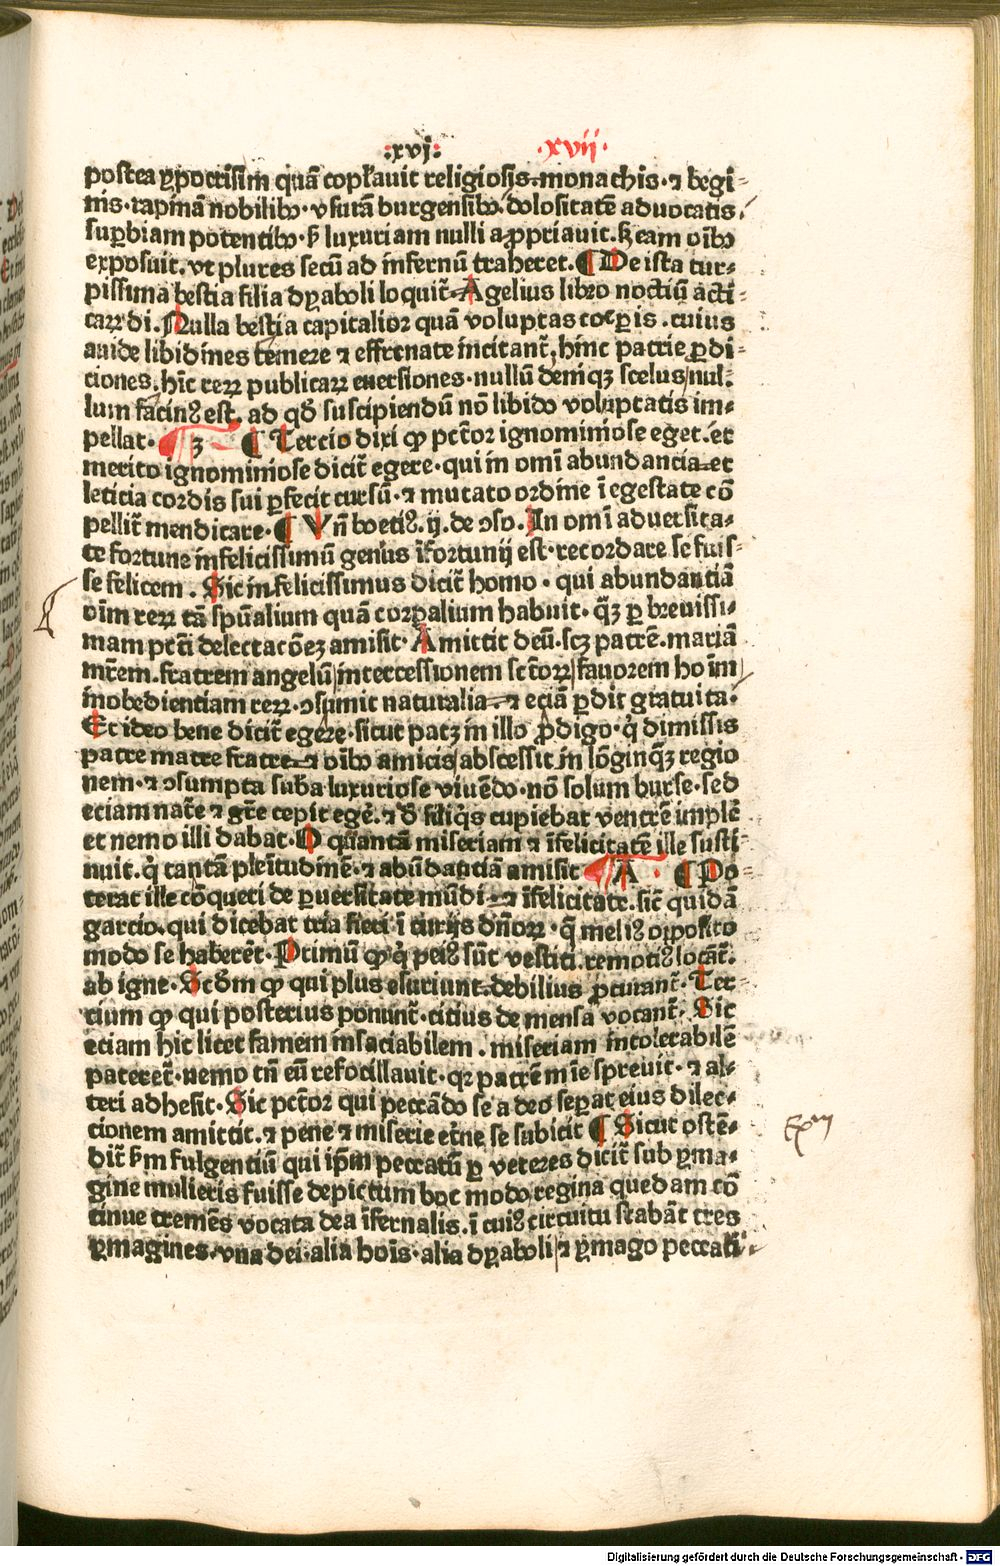 :xvj: ·xvij·
postea ypocrisim quā copl'auit religiosis. monachis · ⁊ begi-
nis · rapinā nobilibꝰ · vsurā burgensibꝰ. dolositatē aduocatis.
suꝑbiam potentibꝰ · sꝫ luxuriam nulli aꝓpriauit. sꝫ eam oībꝰ
exposuit. vt plures secū ad infernū traheret. ¶ De ista tur-
pissima bestia filia dyaboli loquit̄. Agelius libro noctiū acti-
caꝝ di. Nulla bestia capitalior quā voluptas corꝑis. cuius
auide libidines temere ⁊ effrenate incitant̄, hinc patrie ꝑdi-
ciones, hīc reꝝ publicaꝝ euersiones · nullū deniqꝫ scelus nul-
lum facinꝰ est. ad qđ suscipiendū nō libido voluptatis im-
pellat · 3 ¶ Tercio dixi ꝙ pctōr ignominiose eget. et
merito ignominiose dicit̄ egere · qui in omī abundancia et
leticia cordis sui ꝑfecit cursū · ⁊ mutato ordine ī egestate cō
pellit̄ mendicare · ¶ Vn̄ boetiꝰ. ij. de ꝯso. In omī aduersita-
te fortune infelicissimū genus īfortunij est · recordare se fuis-
se felicem. Sic infelicissimus dicit̄ homo · qui abundantiā
oīm reꝝ tā spūalium quā corpalium habuit · qꝫ ꝑ breuissi-
mam pcti delectacōeꝫ amisit · Amittit deū. scꝫ patrē. mariā
mr̄em. fratrem angelū intercessionem sctōꝝ fauorem hoīm
inobedientiam reꝝ. ꝯsumit naturalia. ⁊ eciā ꝑdit gratuita ·
Et ideo bene dicit̄ egere · sicut patꝫ in illo ꝓdigo · q̇ dimissis
patre matre fratre ⁊ oībꝰ amicis abscessit in lōginqꝫ regio
nem · ⁊ ꝯsumpta suba luxuriose viuēdo · nō solum burse · sed
eciam nat̄e ⁊ gr̄e cepit egē · ⁊ đ siliq̇s cupiebat ventrē implē
et nemo illi dabat · O quantā miseriam ⁊ īfelicitatē ille susti
nuit. q̇ tantā plenītudinē · ⁊ abūdantiā amisit A · ¶ Po-
terat ille cōqueri de ꝑuersitate mūdi ⁊ īfelicitate. sic̄ quidā
garcio. qui dicebat tria fieri ī curijs dn̄oꝝ · q̄ meliꝰ opposito
modo se haberēt · Primū ꝙ q̇ peiꝰ sūt vestiti remotiꝰ locāt̄.
ab igne · Scđm ꝙ qui plus esuriunt. debilius ꝓcurant̄ · Ter
cium ꝙ qui posterius ponunt̄ · citius de mensa vocant̄ · Sic
eciam hic licet famem insaciabilem. miseriam intolerabilē
pateret̄ · nemo tn̄ eū refocillauit · qꝛ patrē m̄ie spreuit · ⁊ al-
teri adhesit · Sic pctōr qui peccādo se a deo seꝑat eius dilec-
tionem amittit. ⁊ pene ⁊ miserie etn̄e se subicit ¶ Sicut ostē-
dit̄ ẜm fulgentiū qui ip̄m peccatū ꝑ veteres dicit̄ sub yma-
gine mulieris fuisse depictum hoc modo regina quedam cō
tinue tremēs vocata dea īfernalis. ī cuiꝰ circuitu stabāt tres
ymagines. vna dei · alia hoīs · alia dyaboli ⁊ ymago peccati
Digitalisierung gefördert durch die Deutsche Forschungsgemeinschaft - DFG